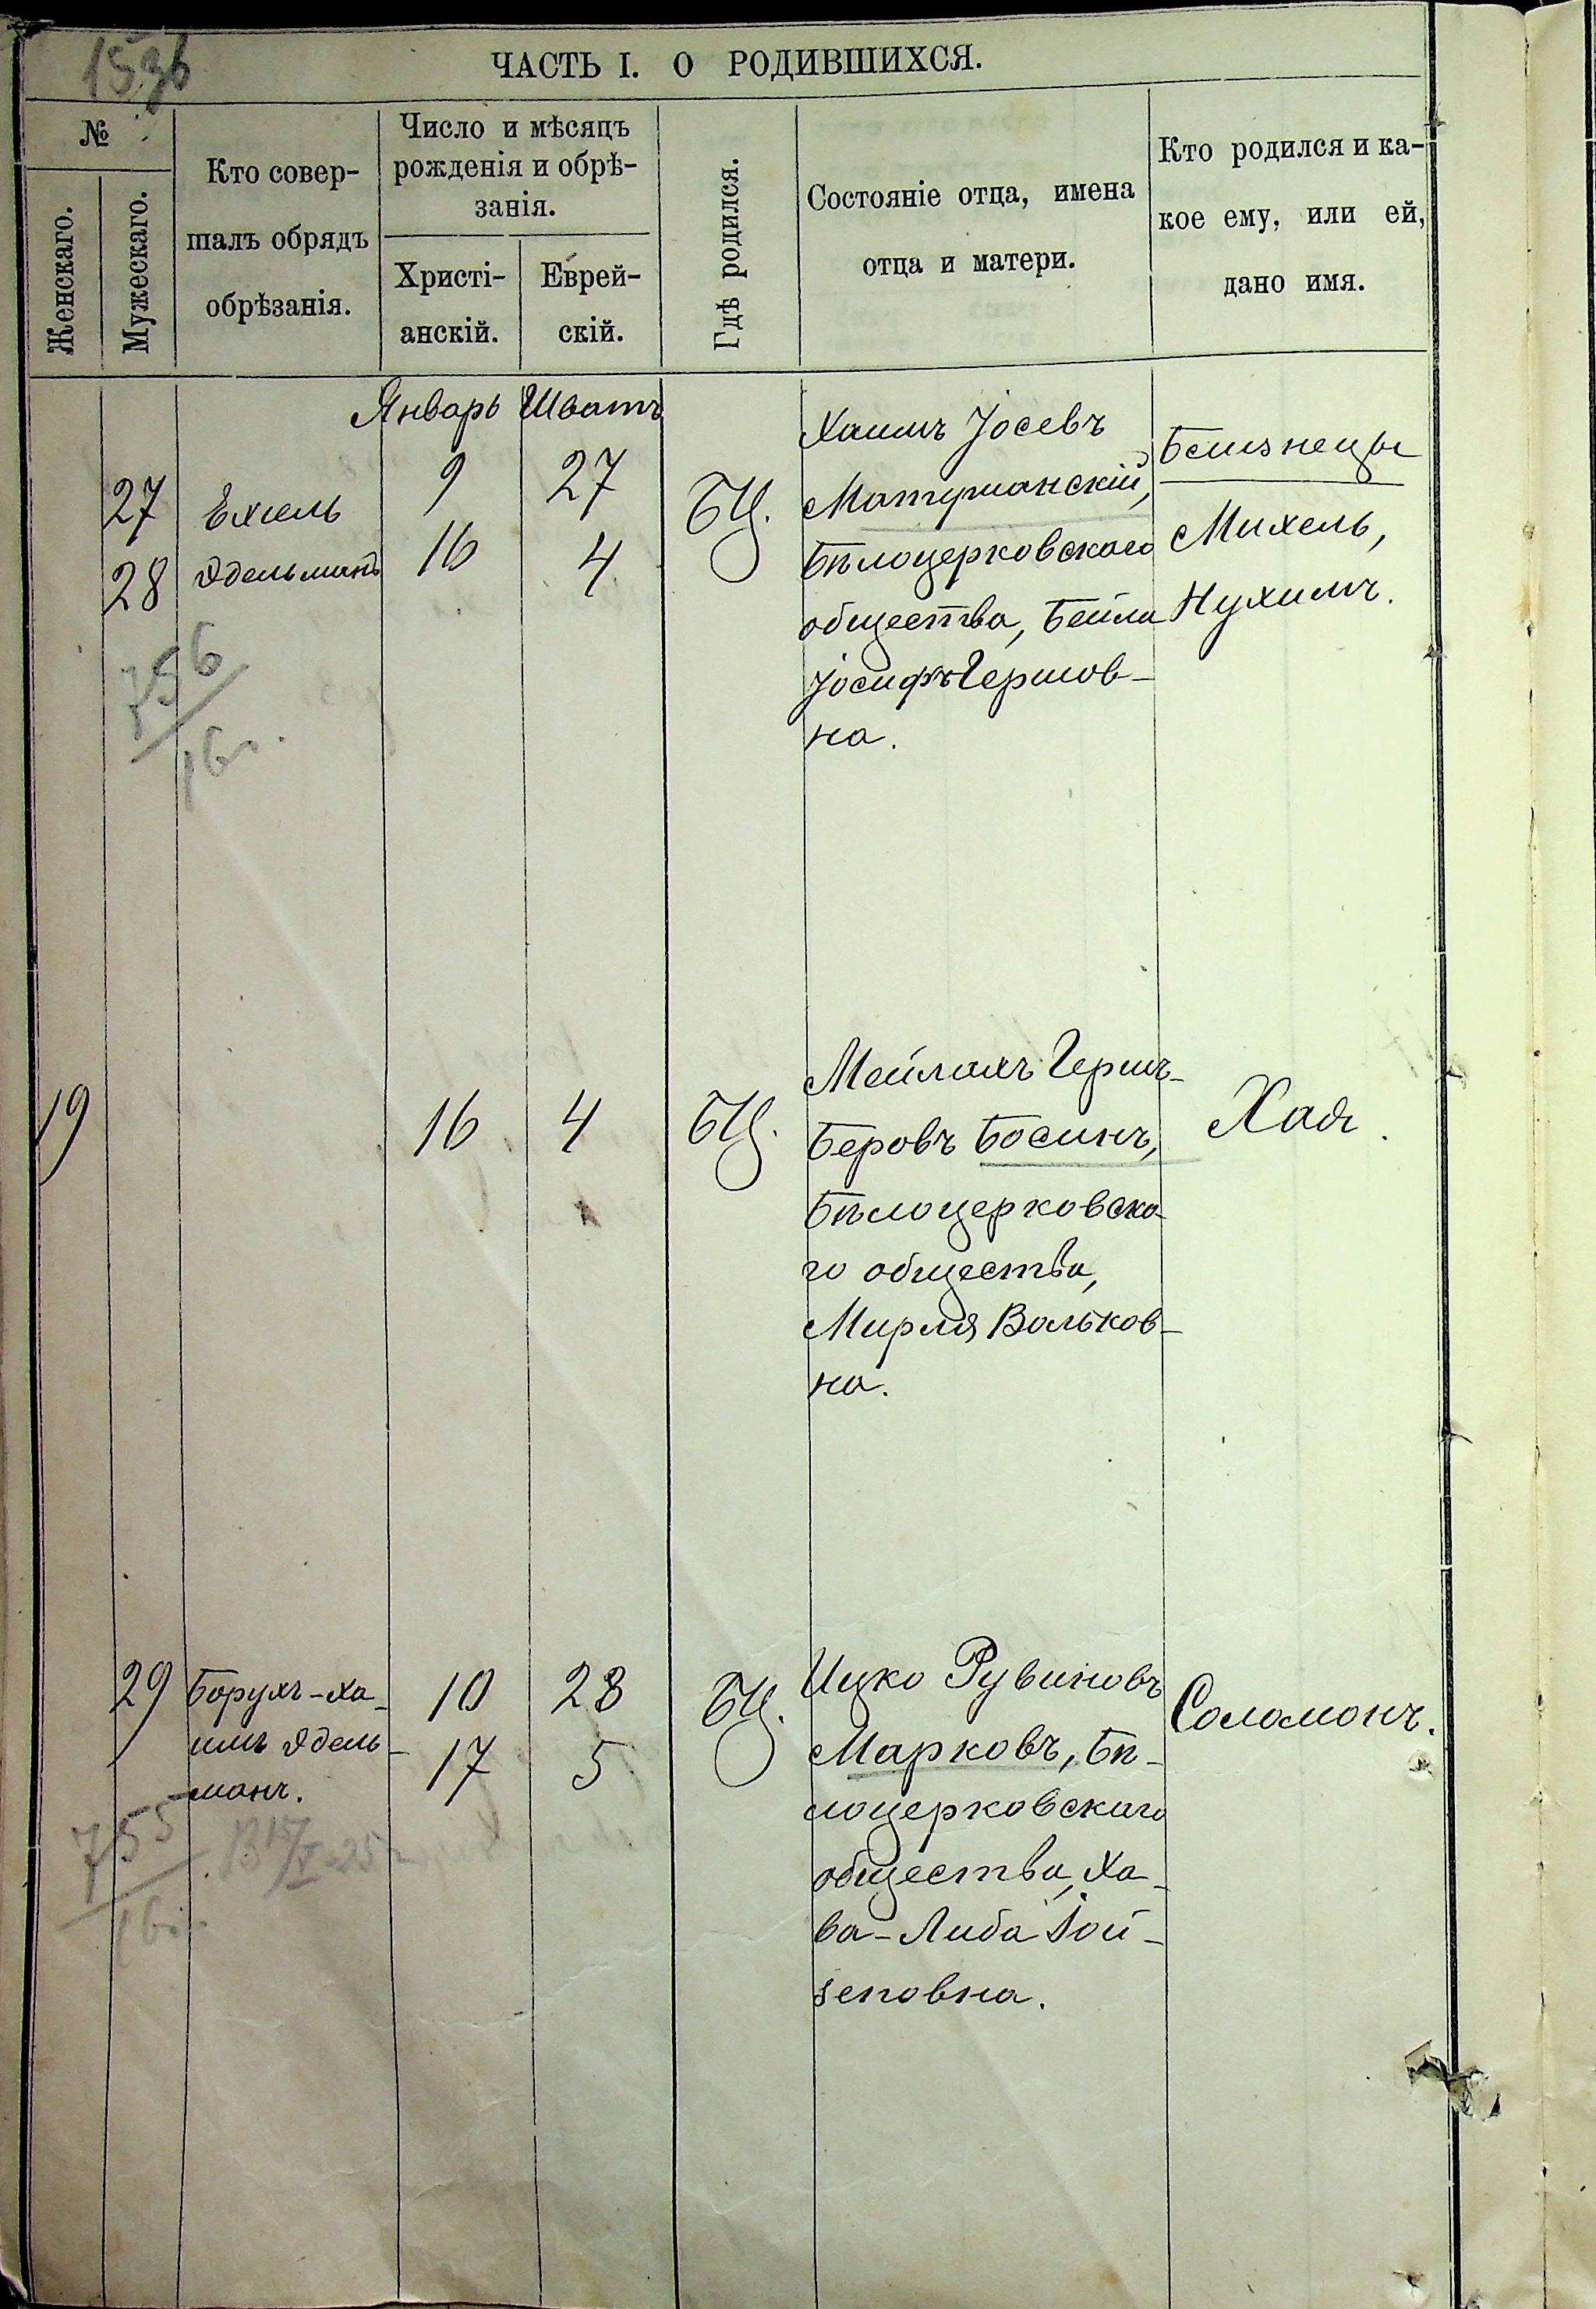 153б
ЧАСТЬ I. О РОДИВШИХСЯ.
№
Женскаго.
Мужескаго.
Кто совер-
шалъ обрядъ
обрѣзанія.
Число и мѣсяцъ
рожденія и обрѣ-
занія.
Христі-
анскій.
Еврей-
скій.
Гдѣ родился.
Состояніе отца, имена
отца и матери.
Кто родился и ка-
кое ему, или ей,
дано имя.
Январь Шватъ
27
28
Ехиель
Эдельманъ
9
16
27
4
БЦ.
Хаимъ Іосевъ
Матушанскій,
Бѣлоцерковскаго
общества, Бейла
Іосифъ Гершов-
на.
Близнецы
Михель,
Нухимъ.
756
16г.
19
16
4
БЦ.
Мейлахъ Гершъ-
Беровъ Босинъ,
Бѣлоцерковска-
го общества,
Мирля Вольков-
на.
Хая.
29
Борухъ-Ха-
имъ Эдель-
манъ.
10
17
28
5
БЦ.
Ицко Рувиновъ
Марковъ, Бѣ-
лоцерковскаго
общества, Ха-
ва-Либа Іой-
зеповна.
Соломонъ.
755
16г.